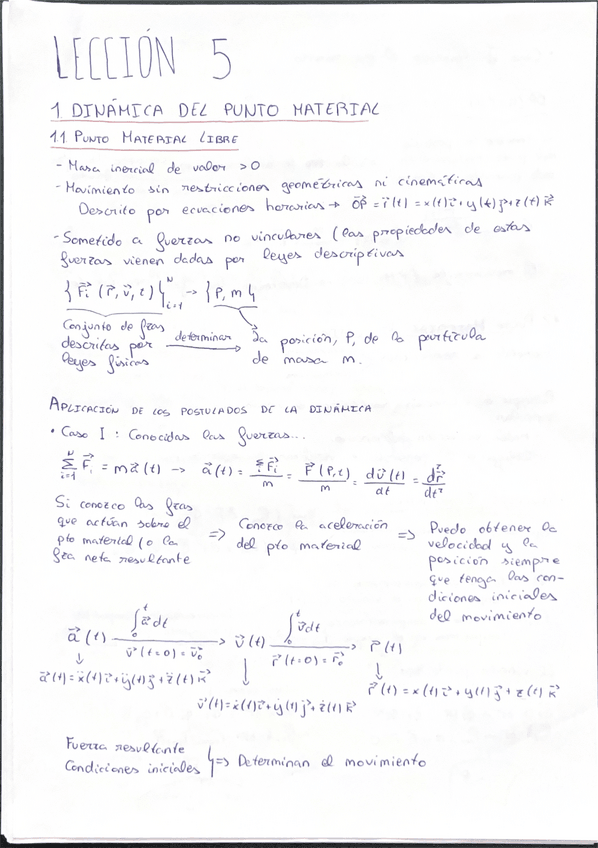 LECCIÓN 5
1 DINÁMICA DEL PUNTO MATERIAL
1.1 PUNTO MATERIAL LIBRE
- Masa inercial de valor > 0
- Movimiento sin restricciones geométricas ni cinemáticas
Descrito por ecuaciones horarias → O⃗P = r⃗(t) = x(t)i⃗ + y(t)j⃗ + z(t)k⃗
- Sometido a fuerzas no vinculares (las propiedades de estas
fuerzas vienen dadas por leyes descriptivas
{F⃗i (r⃗, v⃗, t)}ᴺi=1 → {P, m}
Conjunto de fzas
descritas por
leyes físicas
determinar
La posición, P, de la partícula
de masa m.
APLICACIÓN DE LOS POSTULADOS DE LA DINÁMICA
• Caso I : Conocidas las fuerzas...
Σᴺi=1 F⃗i = m a⃗(t) → a⃗(t) = ΣF⃗i/m = F⃗(P,t)/m = dv⃗(t)/dt = d²r⃗/dt²
Si conozco las fzas
que actúan sobre el
pto material (o la
fza neta resultante
=> Conozco la aceleración
del pto material
=> Puedo obtener la
velocidad y la
posición siempre
que tenga las con-
diciones iniciales
del movimiento
a⃗(t) ∫₀ᵗ a⃗dt v⃗(t=0) = v⃗₀ → v⃗(t) ∫₀ᵗ v⃗dt r⃗(t=0) = r⃗₀ → r⃗(t)
↓ ↓ ↓
a⃗(t) = ẍ(t)i⃗ + ÿ(t)j⃗ + z̈(t)k⃗
r⃗(t) = x(t)i⃗ + y(t)j⃗ + z(t)k⃗
v⃗(t) = ẋ(t)i⃗ + ẏ(t)j⃗ + ż(t)k⃗
Fuerza resultante
Condiciones iniciales } => Determinan el movimiento